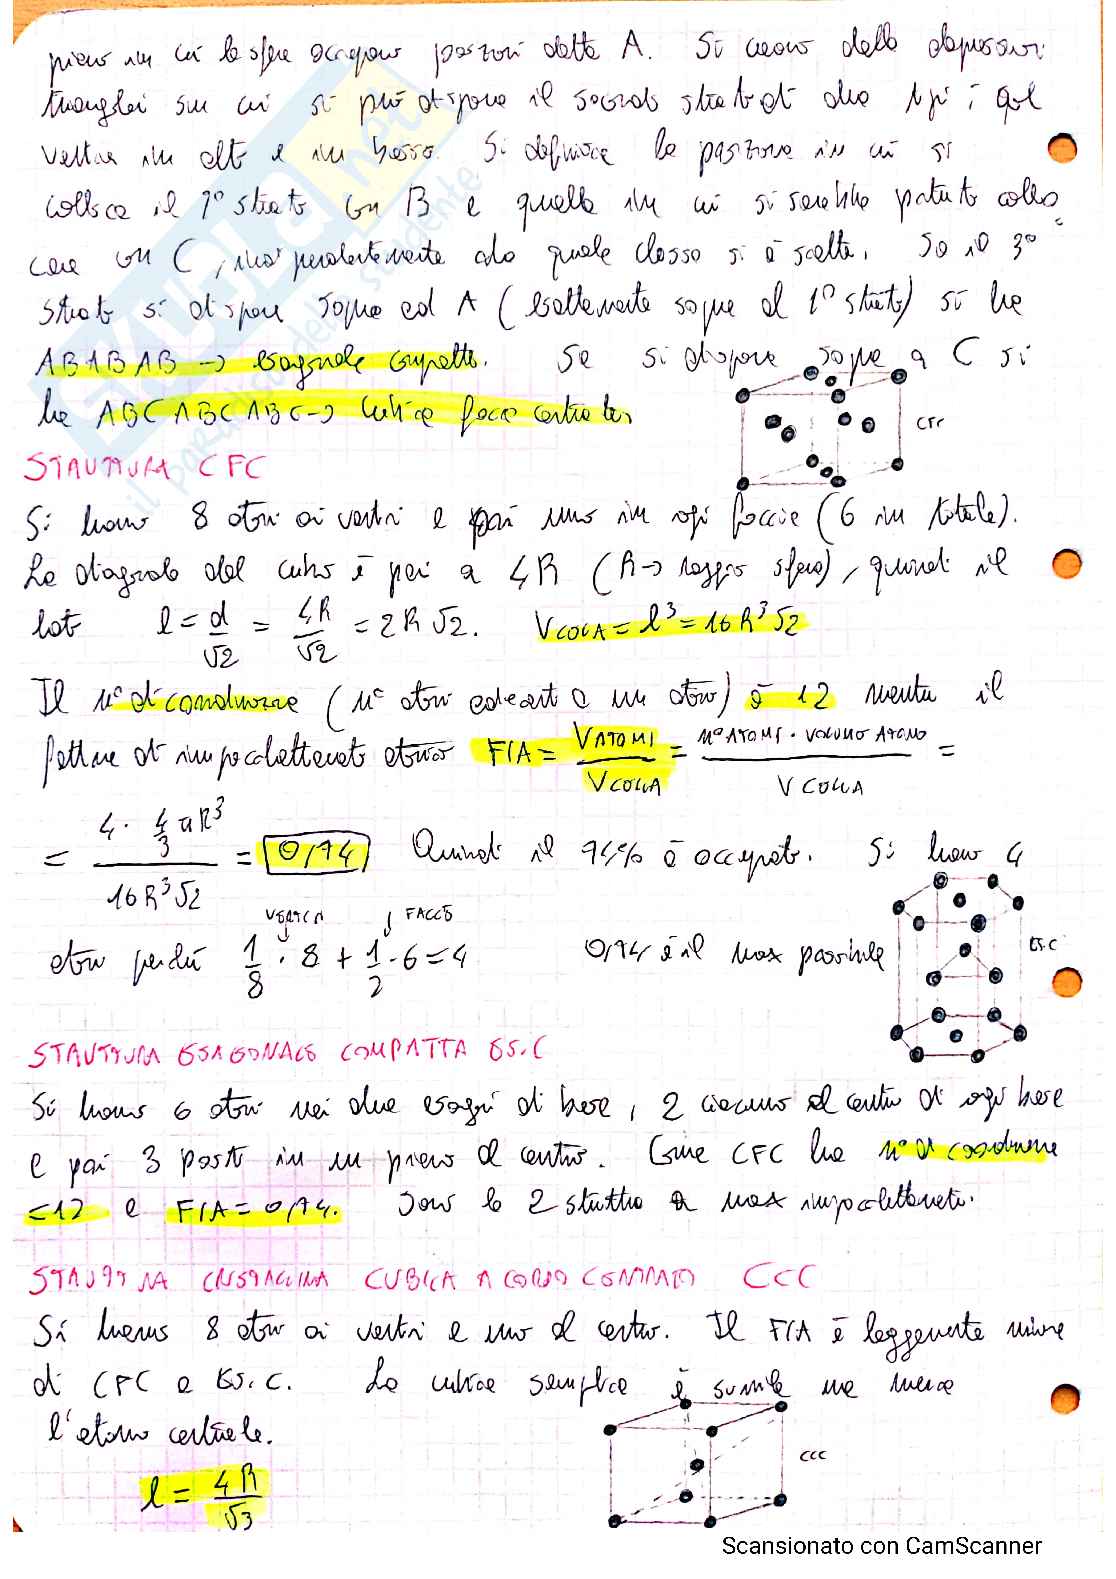 piano in cui le sfere occupano posizioni dette A. Si creano delle depressioni
triangolari su cui si può disporre il secondo strato di due tipi, col
vertice in alto e in basso. Si definisce la posizione in cui si
colloca il 2° strato con B e quella in cui si sarebbe potuto collo
care con C, indipendentemente da quale classe si è scelta. Se il 3°
strato si dispone sopra ad A (esattamente sopra al 1° strato) si ha
ABABAB → esagonale compatta. Se si dispone sopra a C si
ha ABCABCABC → cubica facce centrate.
CFC
STRUTTURA CFC
Si hanno 8 atomi ai vertici e poi uno in ogni faccia (6 in totale).
La diagonale del cubo è pari a 4R (R → raggio sfera), quindi il
lato l = d/√2 = 4R/√2 = 2R√2. VCELLA = l³ = 16R³√2
Il n° di coordinazione (n° atomi adiacenti a un atomo) è 12 mentre il
fattore di impacchettamento atomico FIA = VATOMI/VCELLA = N° ATOMI · VOLUME ATOMO/V CELLA =
= 4 · 4/3 πR³/16R³√2 = 0,74 Quindi il 74% è occupato. Si hanno 4
VERTICI FACCE
atomi perché 1/8 · 8 + 1/2 · 6 = 4 0,74 è il max possibile
ES.C
STRUTTURA ESAGONALE COMPATTA ES.C
Si hanno 6 atomi nei due esagoni di base, 2 ciascuno al centro di ogni base
e poi 3 posti in un piano al centro. Come CFC ha n° di coordinazione
=12 e FIA = 0,74. Sono le 2 strutture a max impacchettamento.
STRUTTURA CRISTALLINA CUBICA A CORPO CENTRATO CCC
Si hanno 8 atomi ai vertici e uno al centro. Il FIA è leggermente minore
di CFC e ES.C. La cubica semplice è simile ma manca
l'atomo centrale.
CCC
l = 4R/√3
Scansionato con CamScanner